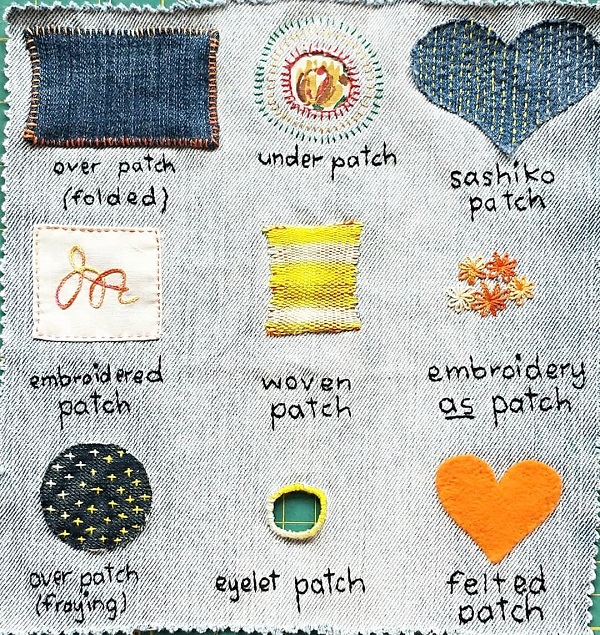 over patch
(folded)
under patch
sashiko
patch
embroidered
patch
woven
patch
embroidery
as patch
over patch
(fraying)
eyelet patch
felted
patch